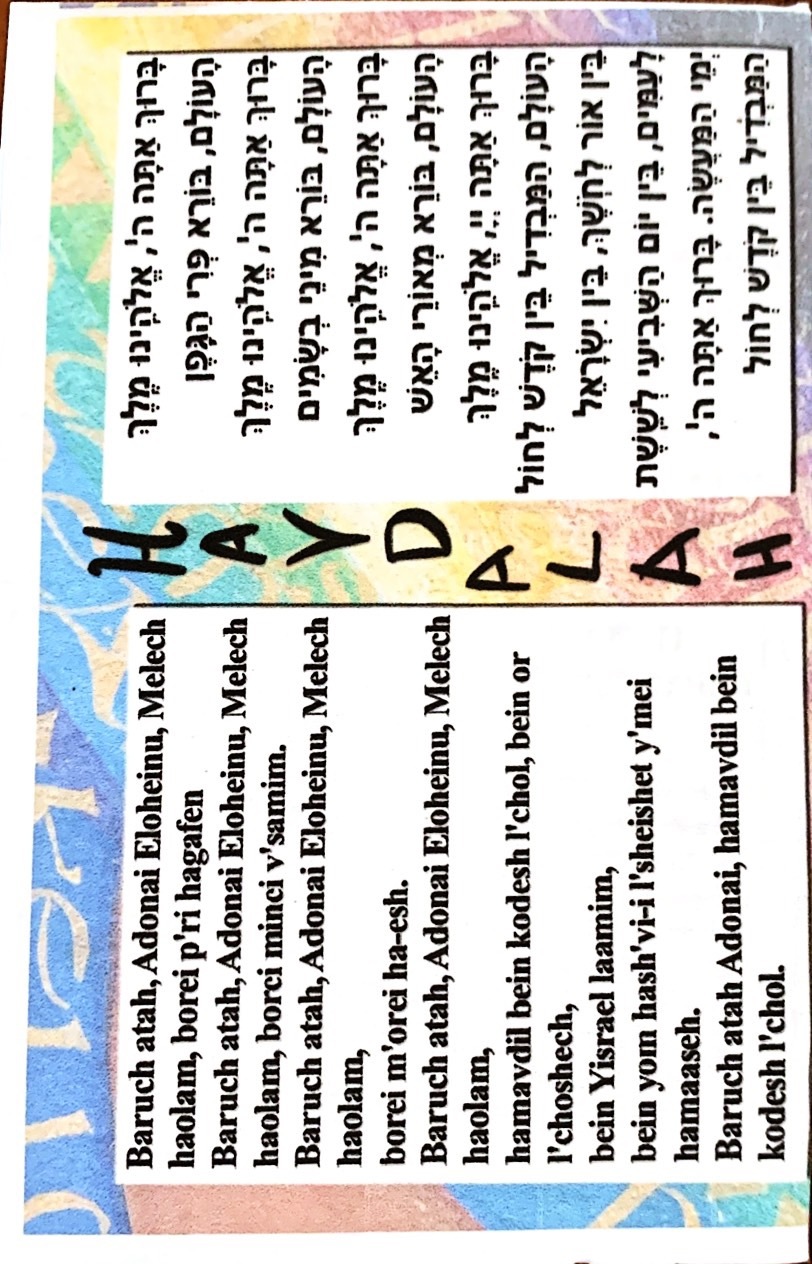 Baruch atah, Adonai Eloheinu, Melech
haolam, borei p'ri hagafen
Baruch atah, Adonai Eloheinu, Melech
haolam, borci minci v'samim.
Baruch atah, Adonai Eloheinu, Melech
haolam,
borei m'orei ha-esh.
Baruch atah, Adonai Eloheinu, Melech
haolam,
hamavdil bein kodesh l'chol, bein or
l'choshech,
bein Yisrael laamim,
bein yom hash'vi-i l'sheishet y'mei
hamaaseh.
Baruch atah Adonai, hamavdil bein
kodesh l'chol.
H
A
V
D
A
L
A
H
בָּרוּךְ אַתָּה ה', אֱלֹהֵינוּ מֶלֶךְ
הָעוֹלָם, בּוֹרֵא פְּרִי הַגָּפֶן
בָּרוּךְ אַתָּה ה', אֱלֹהֵינוּ מֶלֶךְ
הָעוֹלָם, בּוֹרֵא מִינֵי בְשָׂמִים
בָּרוּךְ אַתָּה ה', אֱלֹהֵינוּ מֶלֶךְ
הָעוֹלָם, בּוֹרֵא מְאוֹרֵי הָאֵשׁ
בָּרוּךְ אַתָּה יְיָ, אֱלֹהֵינוּ מֶלֶךְ
הָעוֹלָם, הַמַּבְדִּיל בֵּין קֹדֶשׁ לְחוֹל
בֵּין אוֹר לְחֹשֶׁךְ, בֵּין יִשְׂרָאֵל
לָעַמִּים, בֵּין יוֹם הַשְּׁבִיעִי לְשֵׁשֶׁת
יְמֵי הַמַּעֲשֶׂה. בָּרוּךְ אַתָּה ה',
הַמַּבְדִּיל בֵּין קֹדֶשׁ לְחוֹל